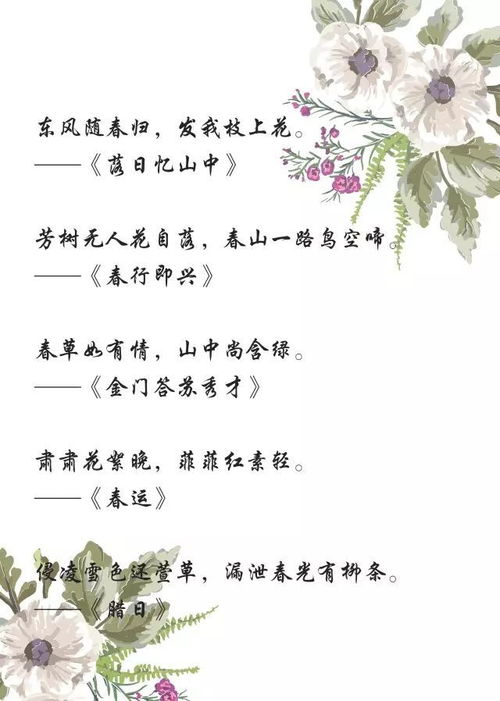 东风随春归，发我枝上花。
——《落日忆山中》
芳树无人花自落，春山一路鸟空啼。
——《春行即兴》
春草如有情，山中尚含绿。
——《金门答苏秀才》
肃肃花絮晚，菲菲红素轻。
——《春运》
侵凌雪色还萱草，漏泄春光有柳条。
——《腊日》